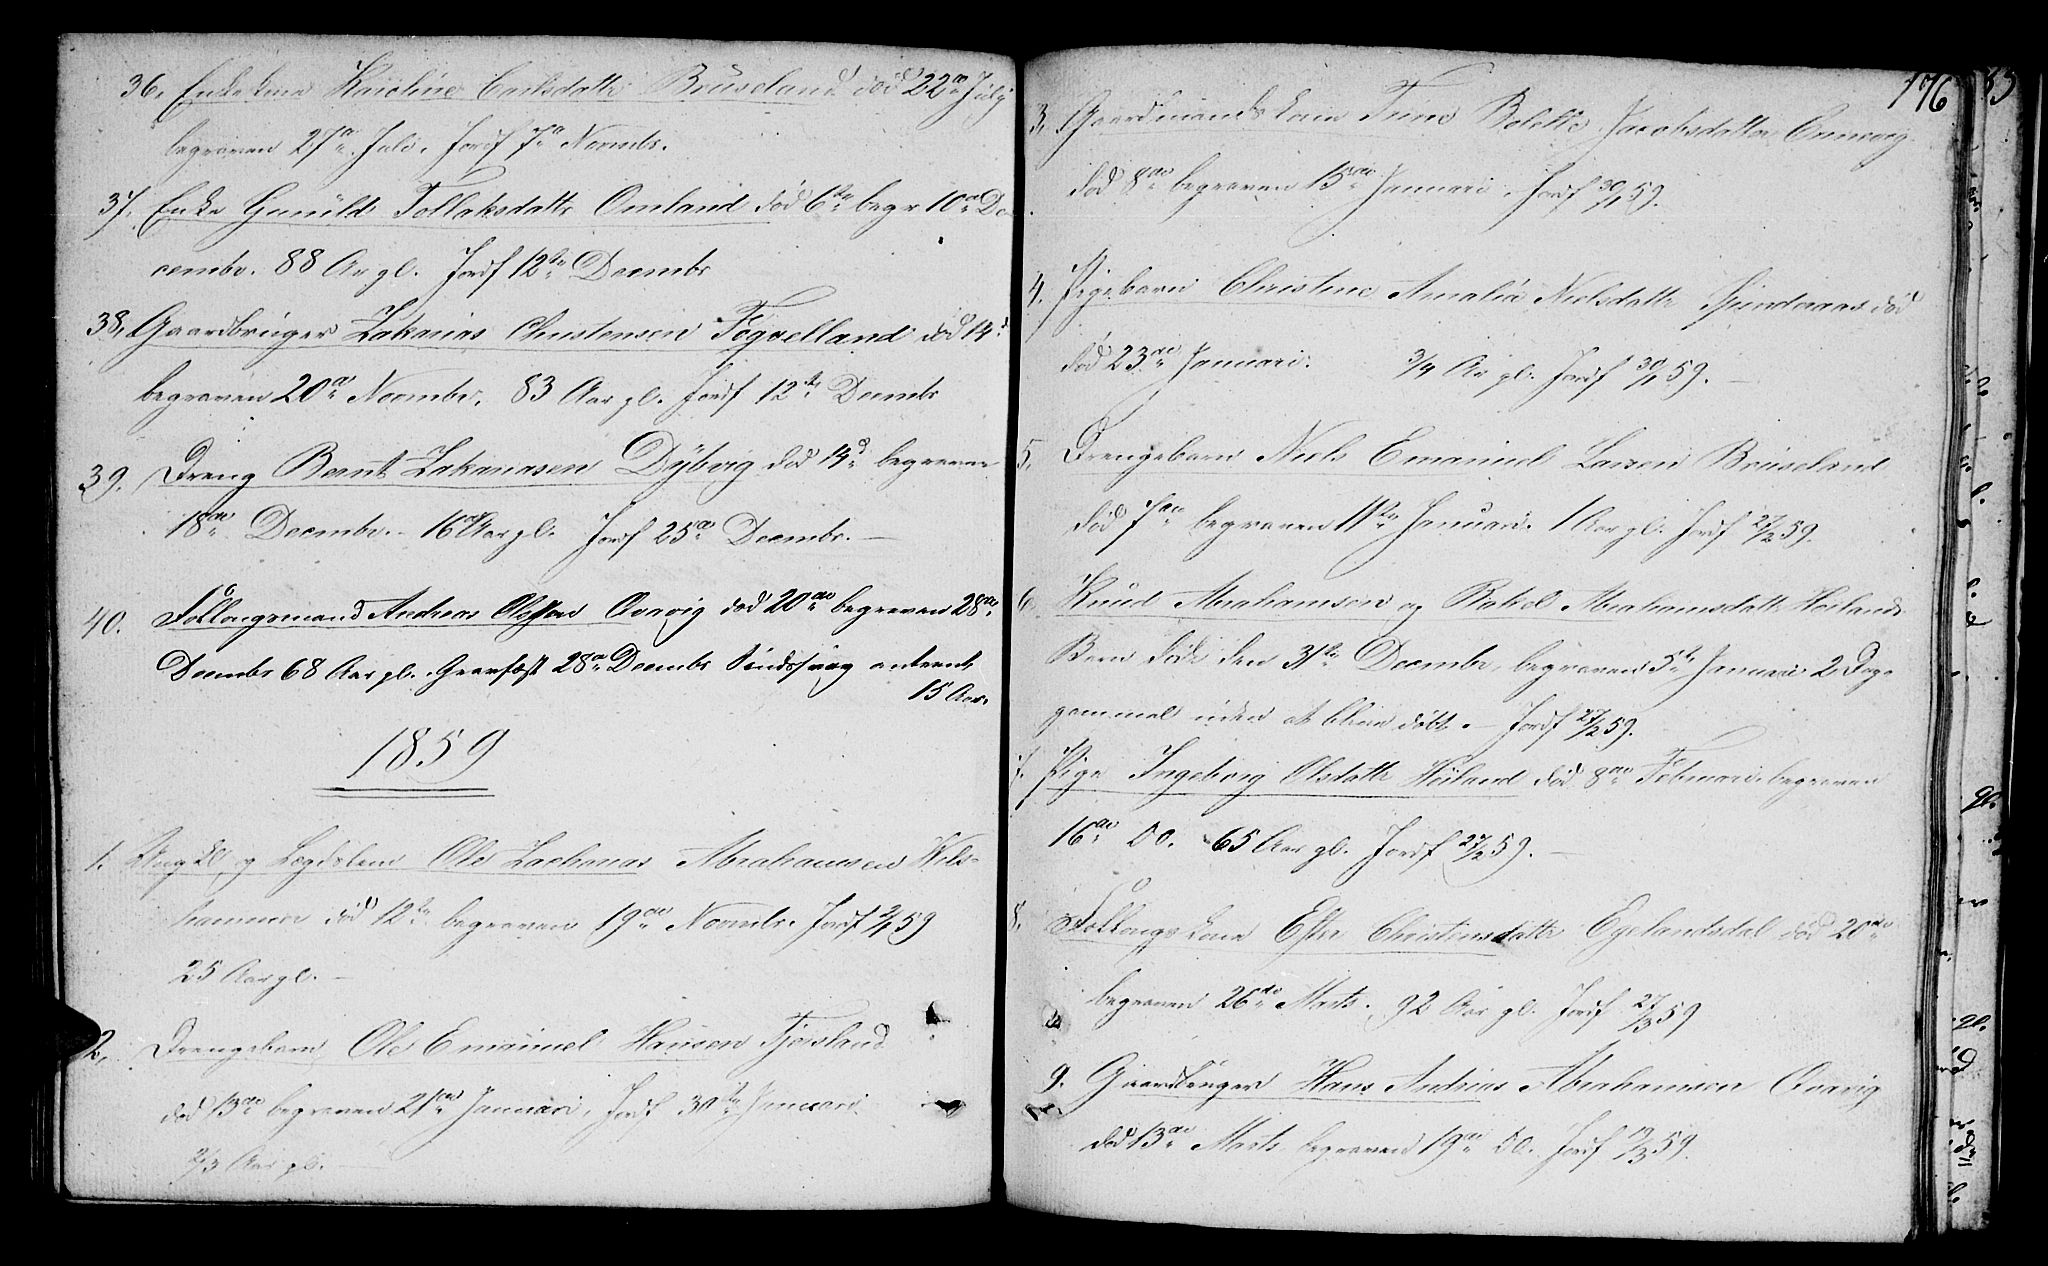 36. Enkekone Karoline Carlsdatter Bruseland død 22de July
begraven 27de Juli. Jordf 7de Novembr.
37. Enke Gunild Tollaksdattr Omland død 6te begr 10de De
cembr. 88 Aar gl. Jordf 12te Decembr
38. Gaardbruger Zakarias Christensen død 14d
begraven 20de Novembr. 83 Aar gl. Jordf 12te Decembr
39. Dreng Bernt Zakariasen Dybvig død 14d begraven
18de Decembr. - 16 Aar gl. Jordf 25de Decembr. —
40. Follougsmand Andreas Olsen Aavig død 20de begraven 28de
Decembr 68 Aar gl. Gravfæst 28de Decembr Sindssvag omtrent
15 Aar.
1859
1. Ungkl og Lægdslem Ole Zacharias Abrahamsen
død 12te begraven 19de Novembr. Jordf 2/1 59
25 Aar gl. —
2. Drengebarn Ole Emanuel Hansen Fjersland
død 13de begraven 21de Januari, Jordf 30te Januari.
2/3 Aar gl. —
176
3. Gaardmands Kone Trine Bolette Jacobsdatter
død 8de begraven 15de Januari. Jordf 30/1 59.
4. Pigebarn Christine Amalia Nielsdattr død
død 23de Januari. 3/4 Aar gl. Jordf 30/1 59. —
5. Drengebarn Niels Emanuel Larsen Bruseland
død 7de begraven 11te Januari. 1 Aar gl. Jordf 27/2 59.
6. Knud Abrahamsen og Rakel Abrahamsdattr Høilands
Børn døde den 31te Decembr, begraven 5te Januari 2 Dage
gammel uden at blive døbt. — Jordf 27/2 59.
7. Pige Ingeborg Olsdattr Høiland død 8de Februari begraven
16de Do. 65 Aar gl. Jordf 27/2 59. —
8. Follougs Kone Ester Christensdattr Egelandsdal død 20de
begraven 26de Marts. 92 Aar gl. Jordf 27/3 59
9. Gaardbruger Hans Andreas Abrahamsen Aavig
død 13de Marts begraven 19de Do. Jordf 19/3 59.